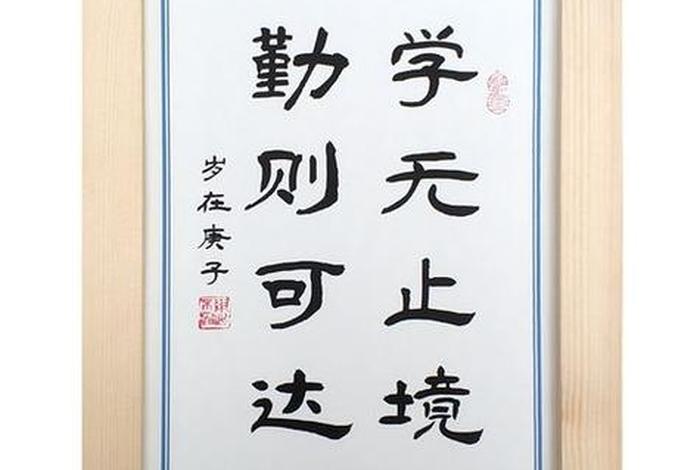 学无止境
勤则可达
岁在庚子